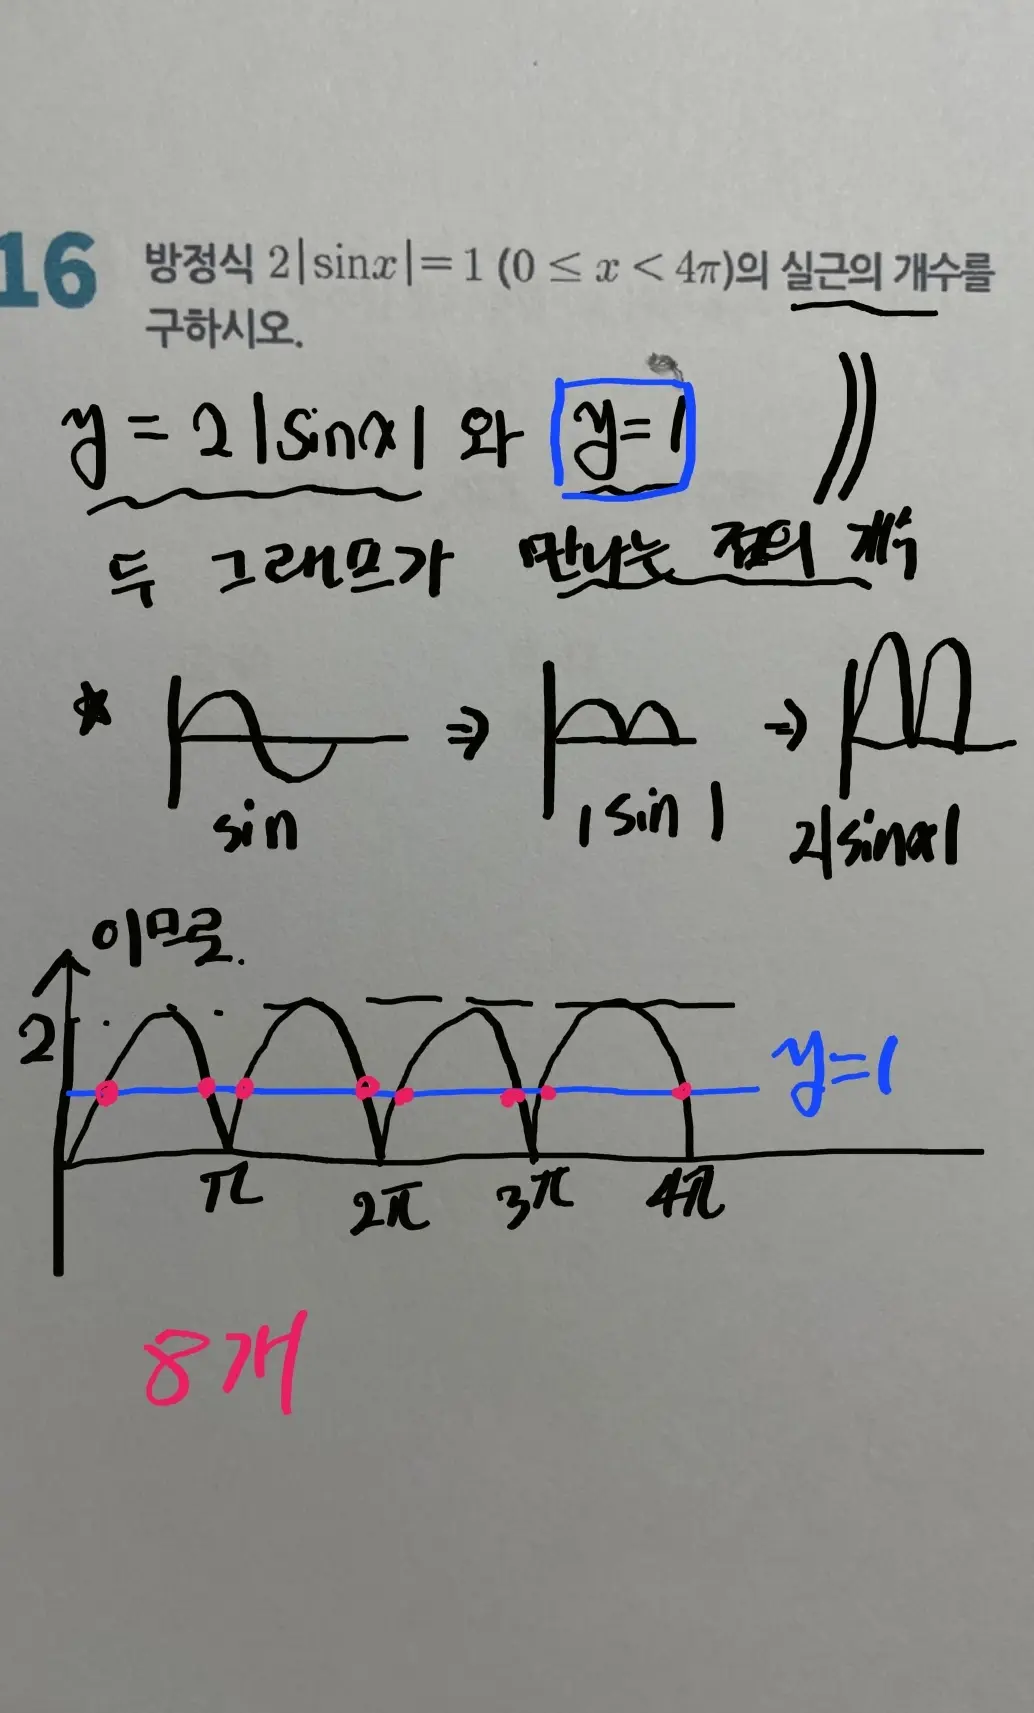 16 방정식 2|sinx|=1 (0 ≤ x < 4π)의 실근의 개수를
구하시오.
y = 2|sinx| 와 y=1
두 그래프가 만나는 점의 개수
* ⇒ ⇒
sin |sin| 2|sinx|
이므로.
2
y=1
π 2π 3π 4π
8개